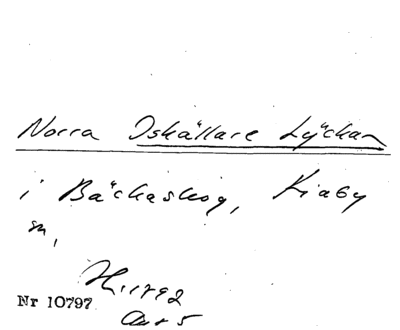 Norra Iskällare Lyckan
i Bäckaskog, Kiaby
sn,
H. 1792
Nr 10797
Akt 5